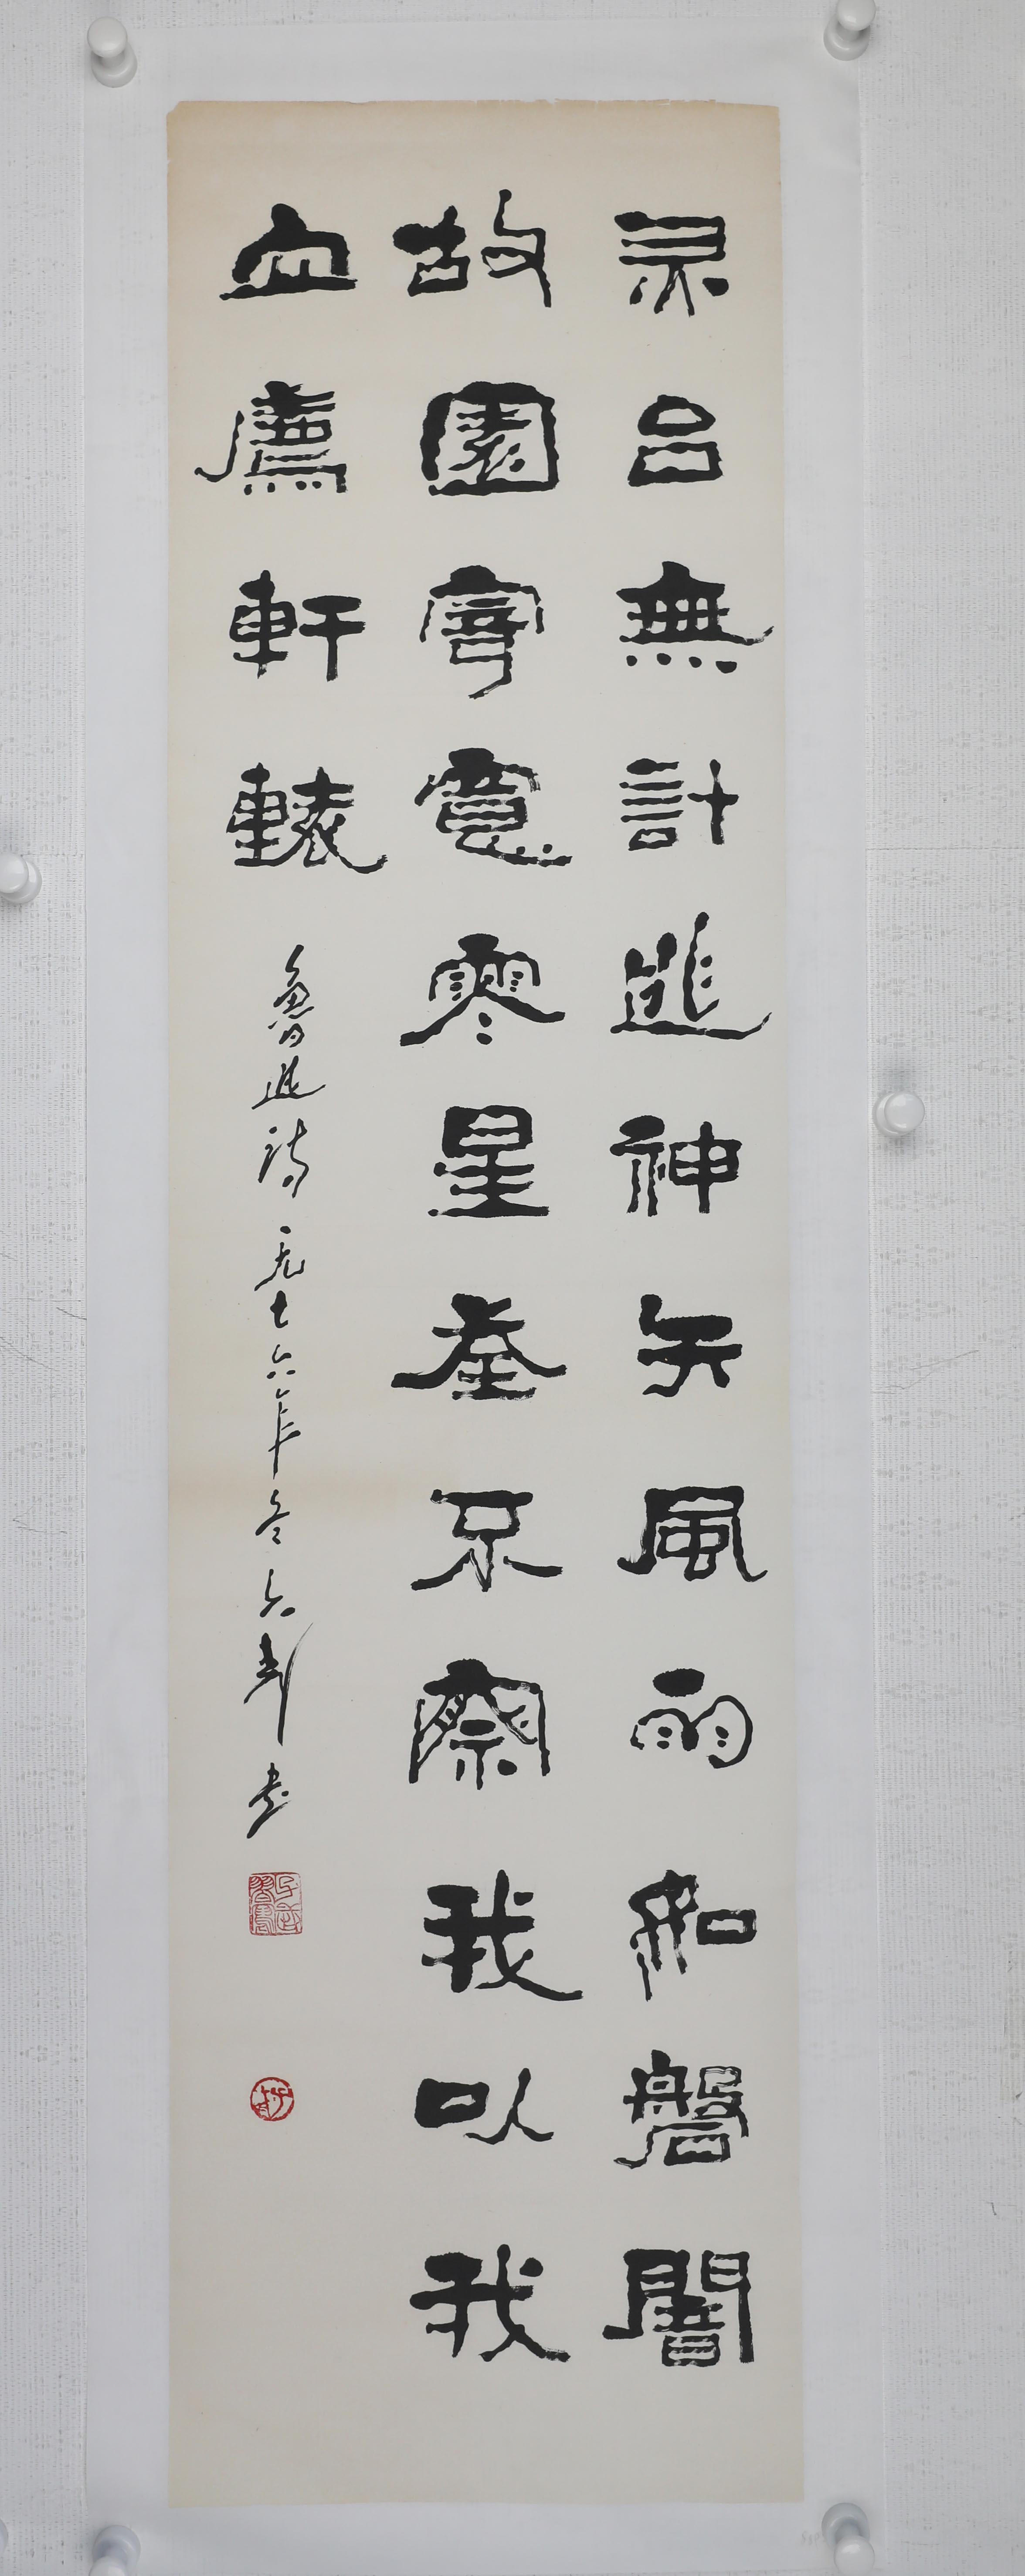 灵台無計逃神矢風雨如磐闇
故園寄意寒星荃不察我以我
血薦軒轅 魯迅詩 一九七六年冬 書